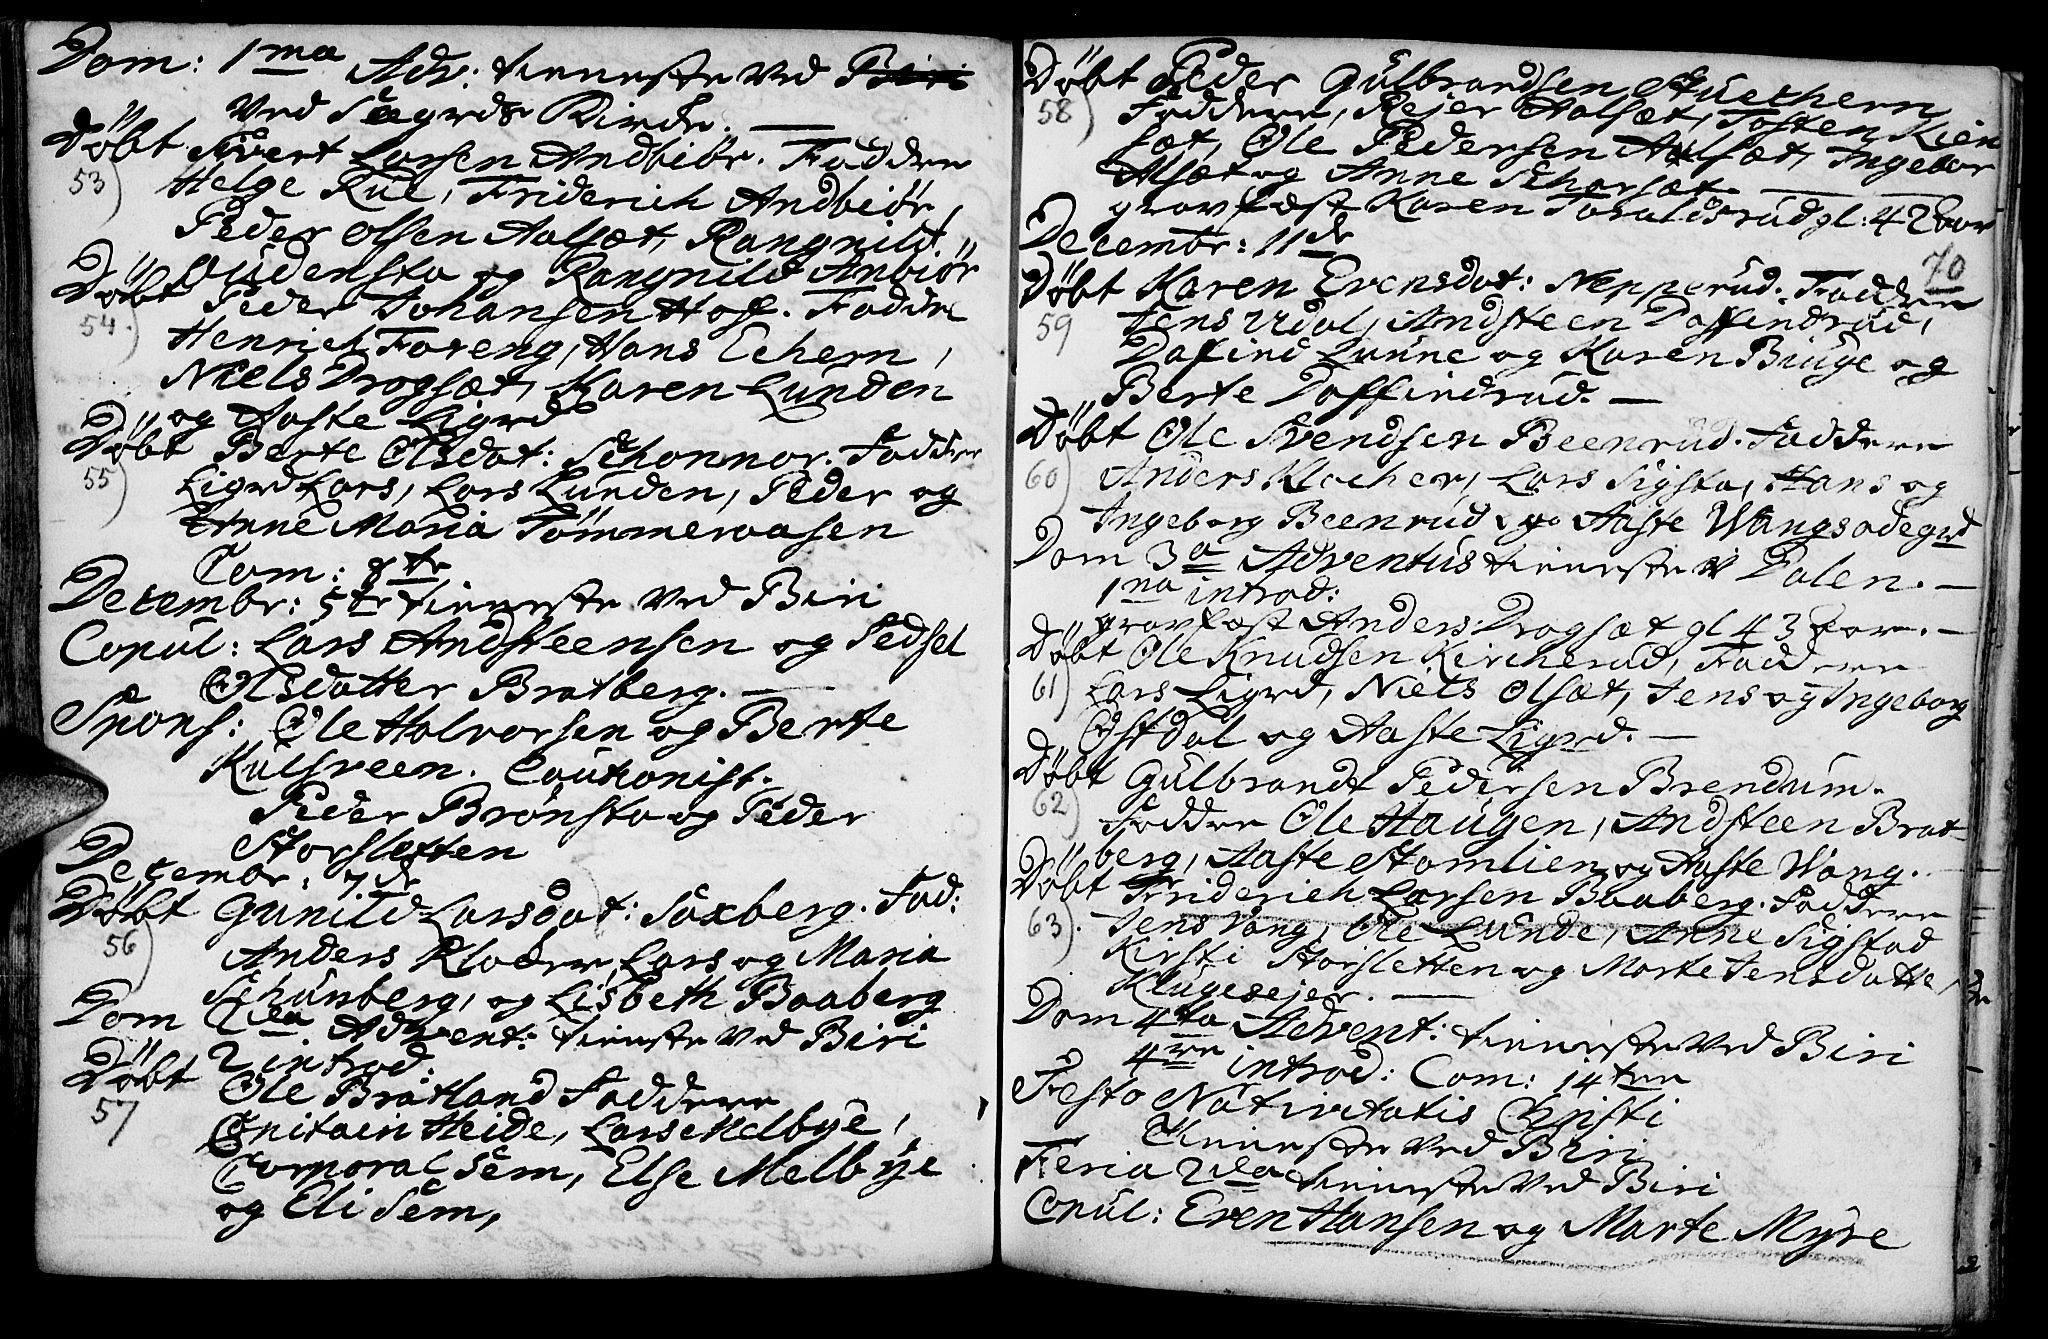 Dom: 1ma Adv: tieneste ved Biri
ved Segrds Kirche.
Döbt Sivert Larsen Andbiör. Faddere
53) Helge Rüe, Friderich Andbiör,
Peder Olsen Aalsæt, Rangnild
Oüdensta og Rangnild Anbiör
Döbt Peder Johansen Hof. Faddere
54.) Henrich Foreng, Hans Echern,
Niels Drogsæt, Karen Lunden
og Aaste Ligrd
Döbt Berte Olsdat: Schonnor. Faddere
55) Ligrd Lars, Lars Lunden, Peder og
Anne Maria Tömmeraasen
Com: 8te
Decembr: 5te tieneste ved Biri
Copul: Lars Andsteensen og Sedsel
Olsdatter Bratberg.
Spons: Ole Halvorsen og Berte
Kulsveen. Cautionist:
Peder Brönsta og Peder
Storsletten
Decembr: 7de
Döbt Gunild Larsdat: Saxberg. Fad:
56) Anders Klocher, Lars og Maria
Schünberg, og Lisbeth Baaberg
Dom 2da Advent: tieneste ved Biri
2 introd:
Döbt Ole Bratland Faddere
57 Capitain Heide, Lars Melbye,
Corporal Sem, Else Melbÿe
og Eli Sem,
Döbt Peder Gulbrandsen Stuechern
58) Faddere, Rejer Aalsæt, Tosten Kien
sæt, Ole Pedersen Aalsæt, Ingebor
Alsæt og Anne Schorsæt
gravfæst Karen Toraldsrud gl: 42 aar
Decembr: 11de
70
Döbt Karen Evensdat: Nepperud. Faddere
59 Jens Udal, Andsteen Daffindrud,
Dafind Lunne og Karen Biuge og
Berte Daffindrud.
Döbt Ole Svendsen Beenrud. Faddere
60) Anders Klocher, Lars Sigsta, Hans og
Ingeborg Beenrud, og Aaste Wangsødegrd
Dom 3a Adventus tieneste v Dalen.
1na introd:
gravfæst Anders Drogsæt gl 43 aar.
Döbt Ole Knudsen Kircherud, Faddere
61) Lars Ligrd, Niels Olsæt, Jens og Ingeborg
Ostdal og Aaste Ligrd.
Döbt Gulbrandt Pedersen Brendum.
62) Faddere Ole Haugen, Andsteen Brat
berg, Aaste Stomlien og Aaste Wang.
Döbt Friderich Larsen Baaberg. Faddere
63). Jens Vang, Ole Lunde, Anne Sigstad
Kirsti Storsletten og Marte Jensdatte,
Klugesejer.
Dom 4ta Advent: tieneste ved Biri
4re introd: Com: 14ten
Festo Nativitatis Christi
Tieneste ved Biri
Feria 2da tieneste ved Biri
Copul: Even Hansen og Marte Myre